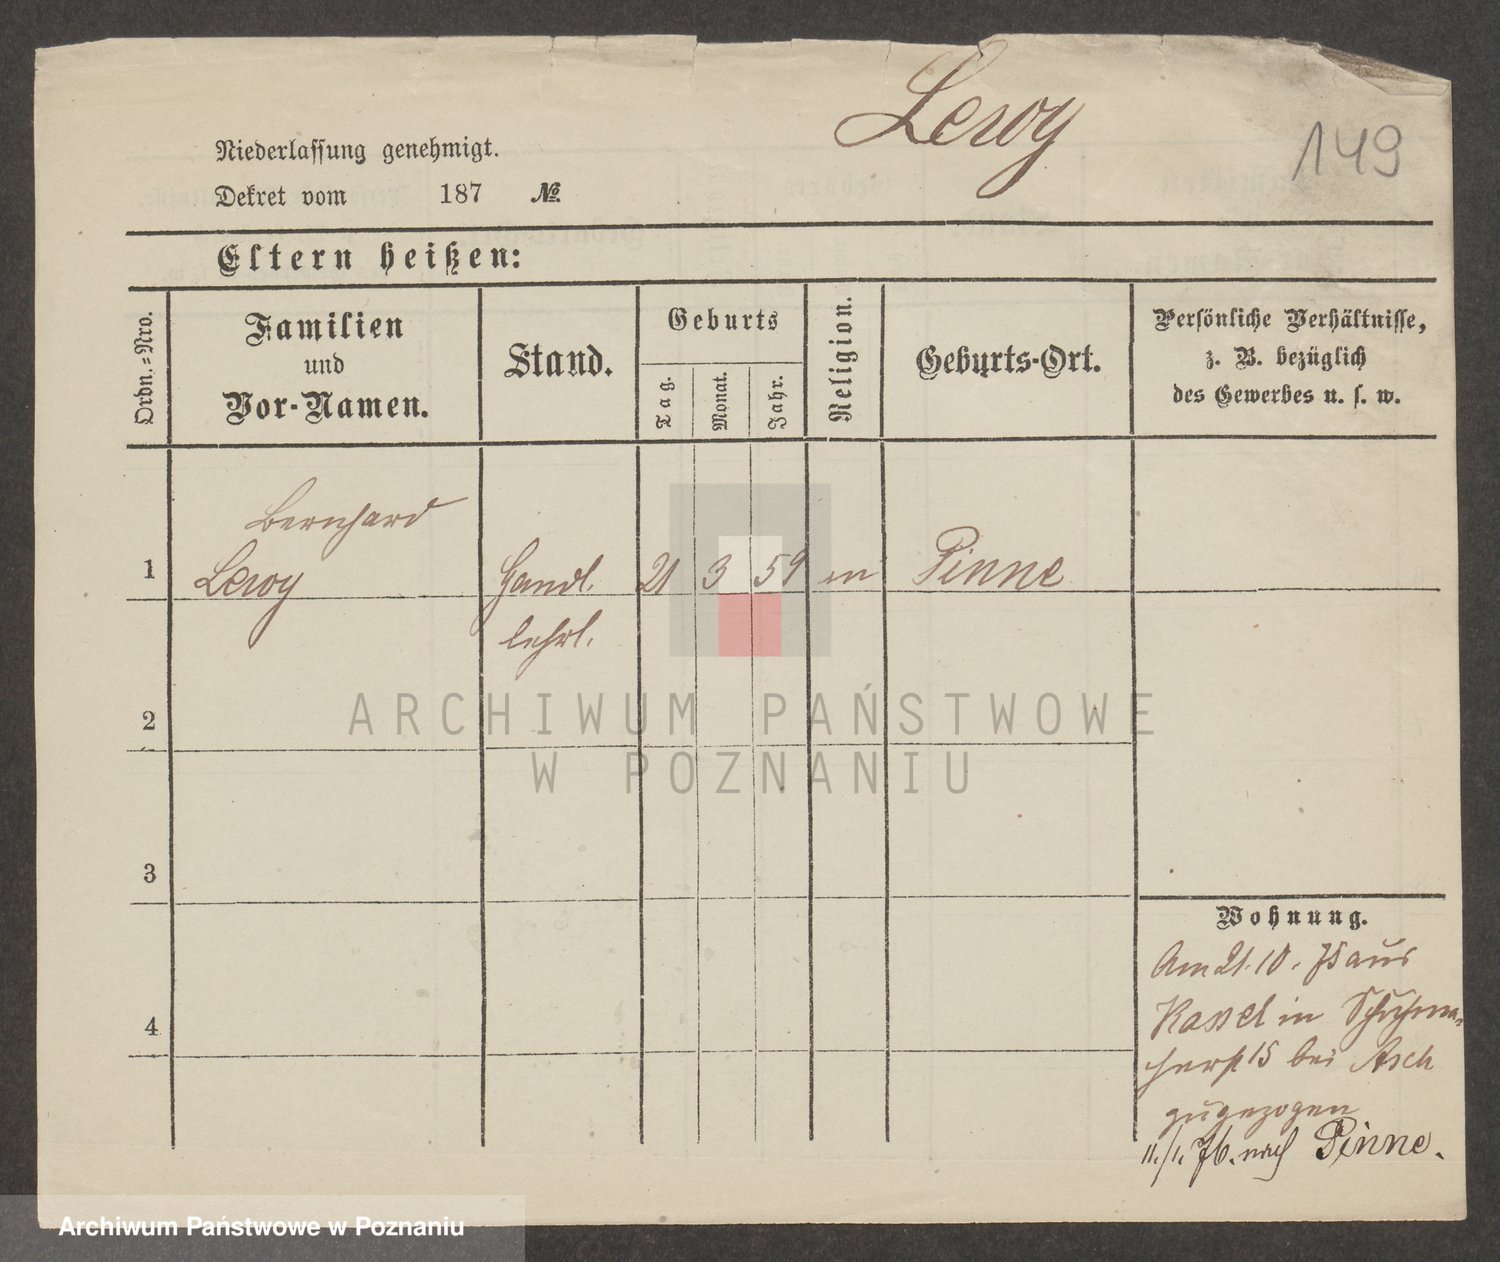 Leroy
149
Niederlassung genehmigt.
Dekret vom 187 №
Eltern heißen:
Ordn.-Nro.
Familien
und
Vor-Namen.
Stand.
Geburts
Tag.
Monat.
Jahr.
Religion.
Geburts-Ort.
Persönliche Verhältnisse,
z. B. bezüglich
des Gewerbes u. s. w.
Bernhard
1 Leroy Handl. 21 3 59 m Pinne
lehrl.
2
3
4
Wohnung.
Am 21.10. 75 aus
Kassel in Schuhma-
herst 15 bei Asch
zugezogen
11./1. 76. nach Pinne.
ARCHIWUM PAŃSTWOWE
W POZNANIU
Archiwum Państwowe w Poznaniu